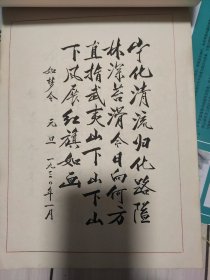 宁化清流归化路隘
林深苔滑今日向何方
直指武夷山下山下山
下风展红旗如画
如梦令 元旦 一九三〇年一月